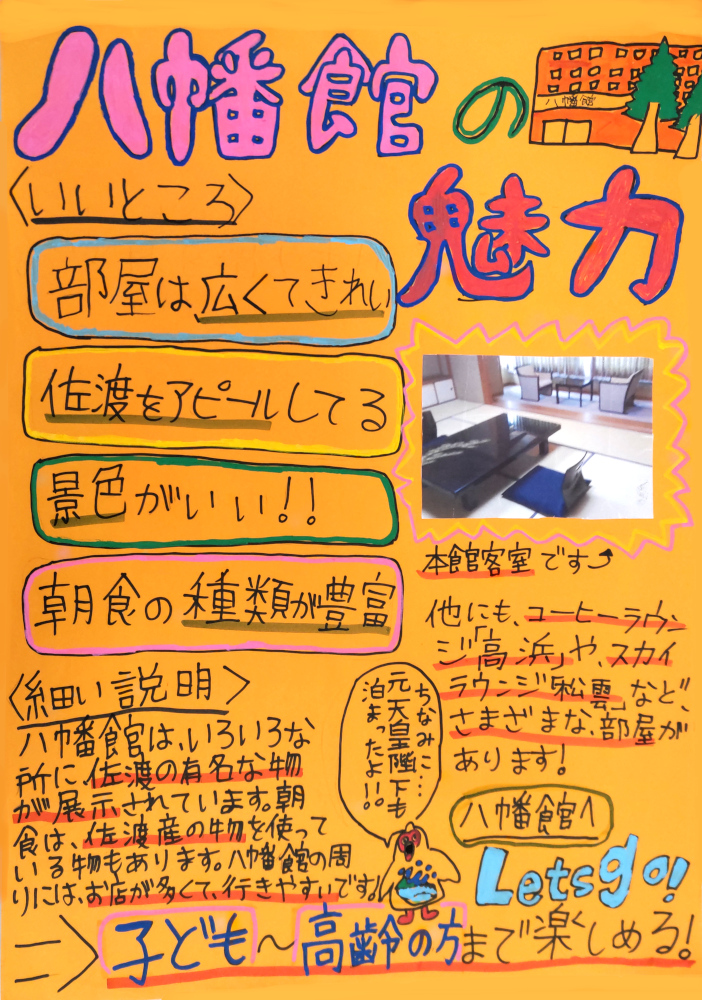 八幡館の
八幡館
魅力
〈いいところ〉
部屋は広くてきれい
佐渡をアピールしてる
景色がいい!!
朝食の種類が豊富
本館客室です
他にも、コーヒーラウン
ジ「高浜」や、スカイ
ラウンジ「松雲」など、
さまざまな、部屋が
あります!
〈細い説明〉
八幡館は、いろいろな
所に佐渡の有名な物
が展示されています。朝
食は、佐渡産の物を使って
いる物もあります。八幡館の周
りには、お店が多くて、行きやすいです。
ちなみに…
元天皇陛下も
泊まったよ!!
八幡館へ
Letsgo!
⇒子ども〜高齢の方まで楽しめる!